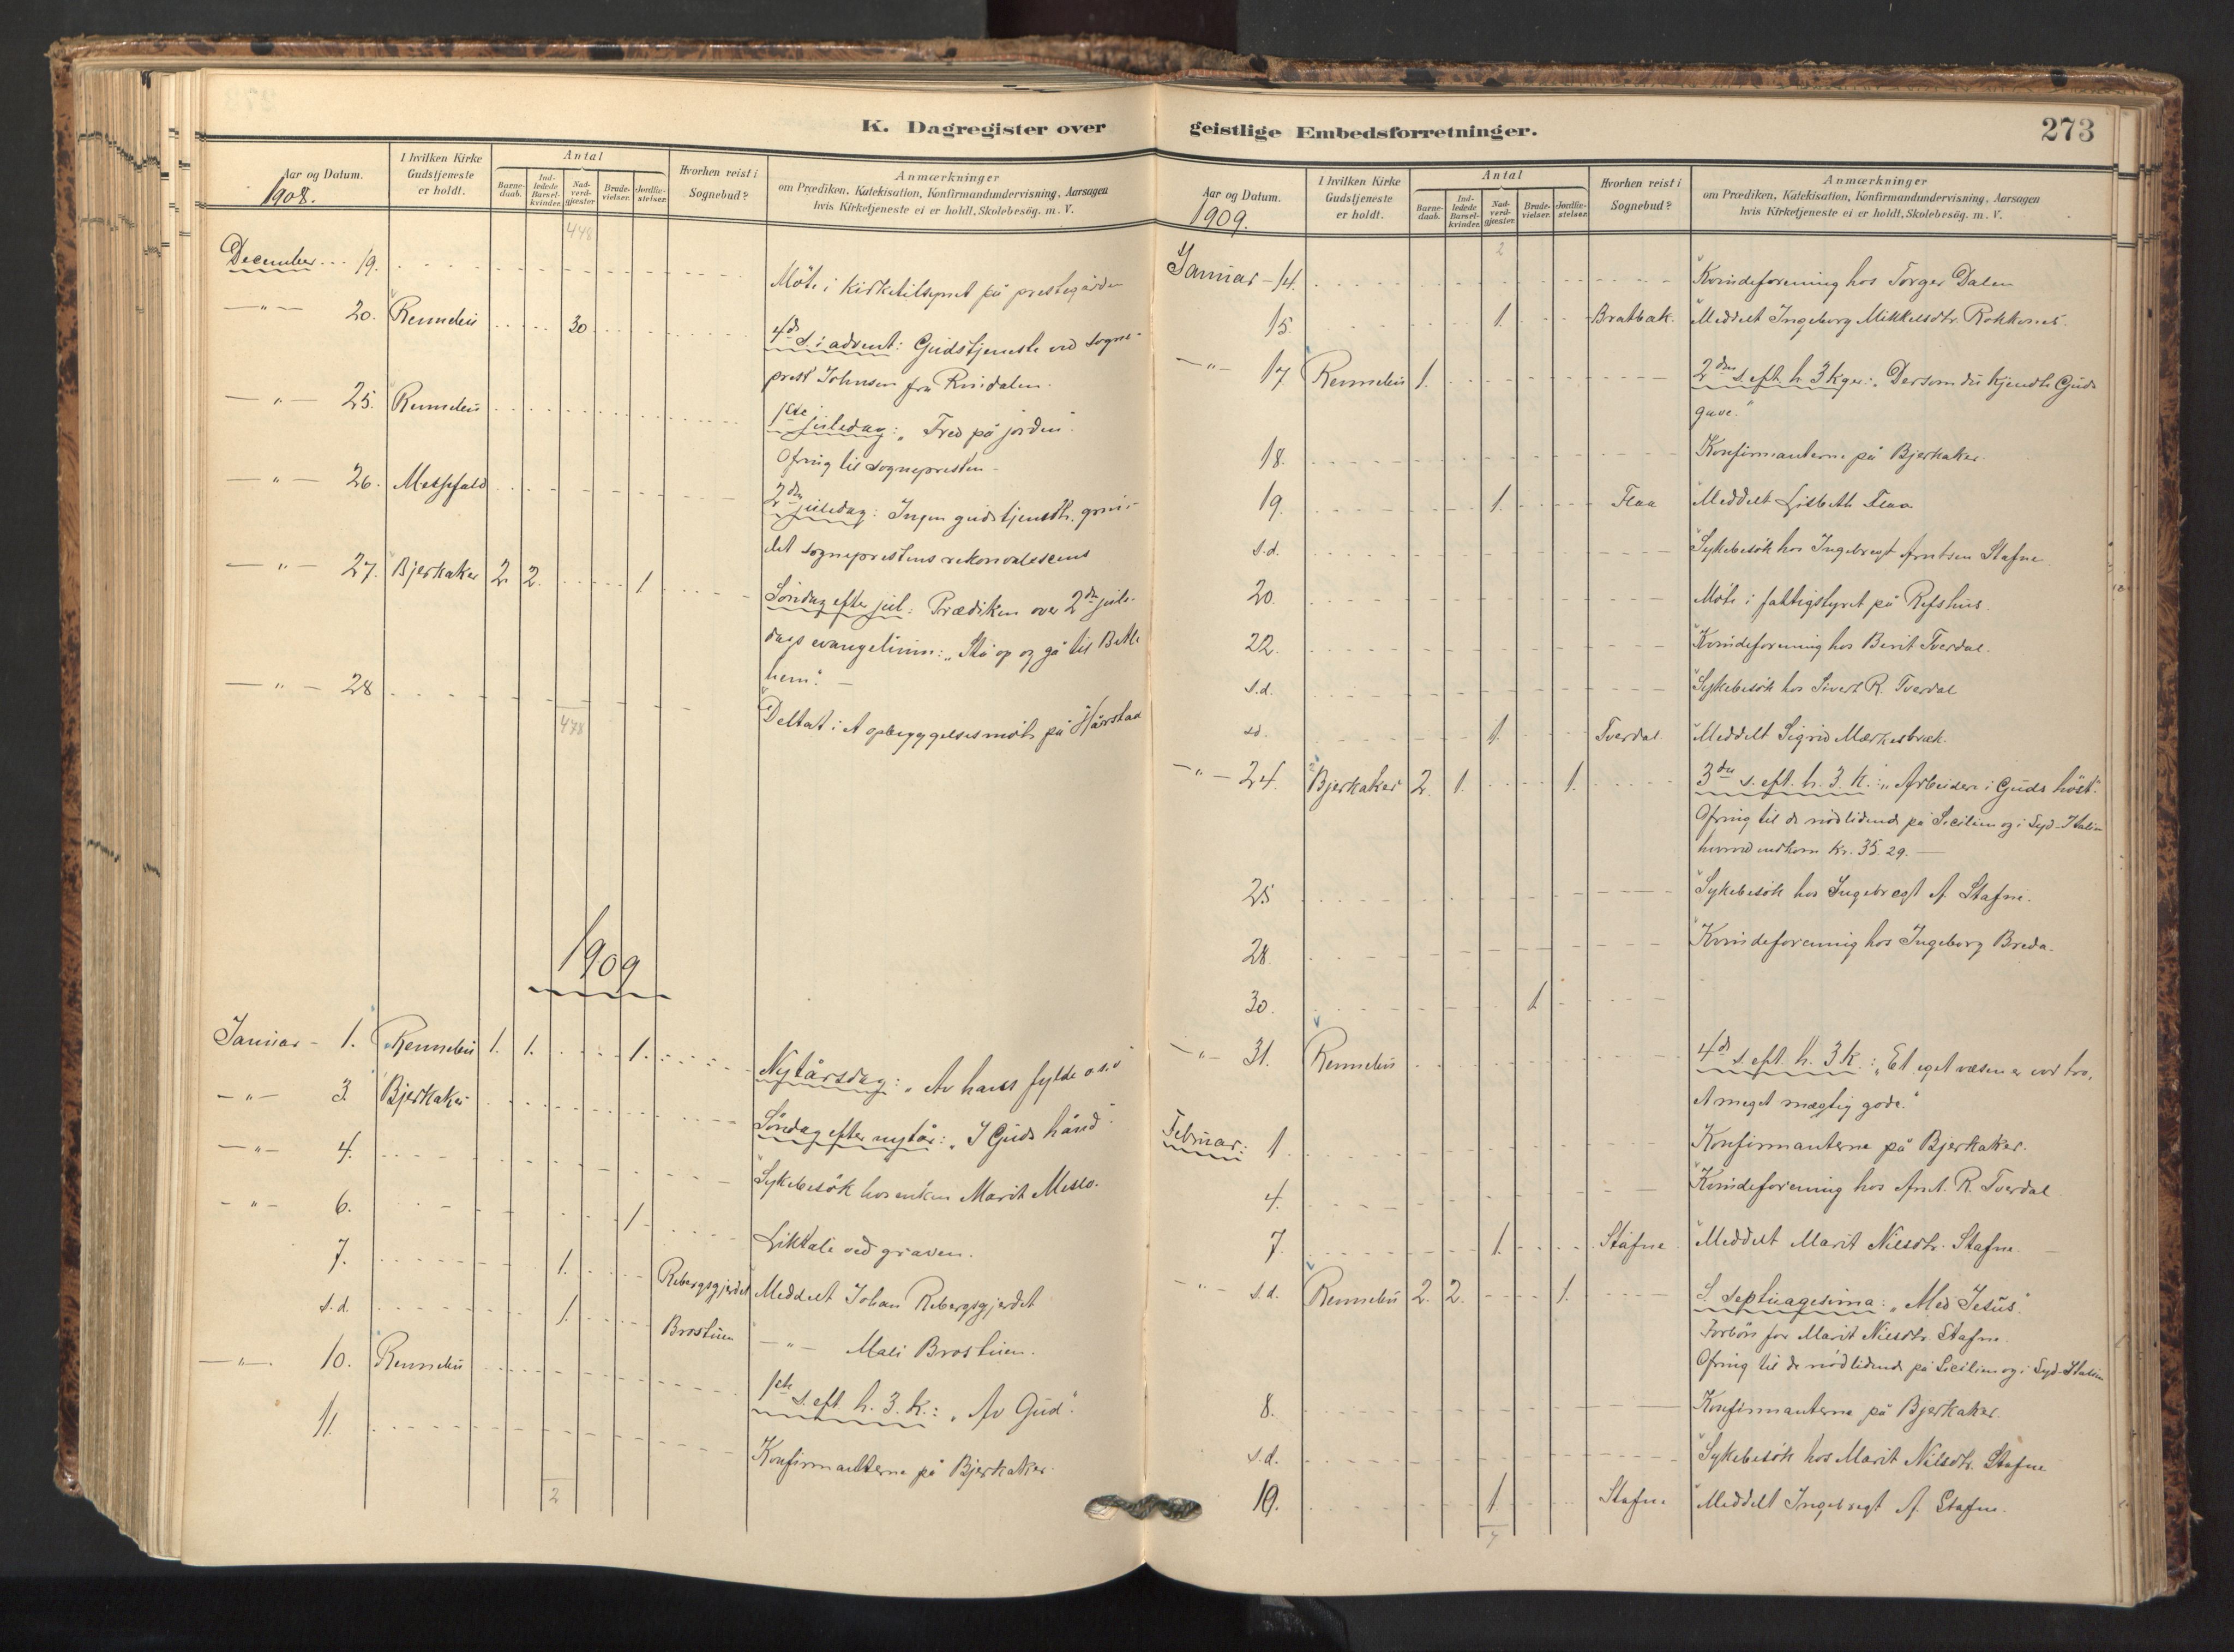 K. Dagregister over
Aar og Datum.
1908.
I hvilken Kirke Gudstjeneste er holdt.
Antal
Barne-daab.
Ind-ledede Barsel-kvinder.
Nad-verd-gjæster.
Brude-vielser.
Jordfæ-stelser.
Hvorhen reist i Sognebud?
Anmærkninger
om Prædiken, Katekisation, Konfirmandundervisning, Aarsagen
hvis Kirketjeneste ei er holdt, Skolebesøg. m. V.
448
December 19. Möte i kirketilsynet på prestegården
-"- 20. Rennebu 30 4de s. i advent: Gudstjeneste ved sogne-
prest Johnsen fra Rindalen.
-"- 25. Rennebu 1ste juledag: "Fred på jorden".
Ofring til sognepresten.
-"- 26. 2den juledag: Ingen gudstjeneste, grun-
det sogneprestens rekonvalescens
-"- 27. Bjerkaker 2. 2. 1 Söndag efter jul: Prædiken over 2den jule-
dags evangelium: "Stå op og gå til Betle
hem". -
-"- 28 Deltat i et opbyggelsesmöte på Hårstad
478
1909
Januar - 1. Rennebu 1. 1. 1. Nytårsdag: "Av hans fylde o.s.v"
-"- 3. Bjerkaker Söndag efter nytår: "I Guds hånd".
-"- 4. Sykebesök hos enken Marit
-"- 6. 1 Liktale ved graven.
7. 1. Rebergsgjerdet Meddelt Johan Rebergsgjerdet
s.d. 1. Brostuen -"- Mali Brostuen.
-"- 10. Rennebu 1ste s. eft. h. 3. k.: "Av Gud".
11. Konfirmanterne på Bjerkaker.
2
geistlige Embedsforretninger.
273
Aar og Datum.
1909.
I hvilken Kirke Gudstjeneste er holdt.
Antal
Barne-daab.
Ind-ledede Barsel-kvinder.
Nad-verd-gjæster.
Brude-vielser.
Jordfæ-stelser.
Hvorhen reist i Sognebud?
Anmærkninger
om Prædiken, Katekisation, Konfirmandundervisning, Aarsagen
hvis Kirketjeneste ei er holdt, Skolebesøg. m. V.
2
Januar - 14. Kvindeforening hos Torger Dalen
15. 1. Bratbak. Meddelt Ingeborg Mikkelsdtr.
-"- 17 Rennebu 1. 2den s. eft. h. 3 kger: "Dersom du kjendte Guds
gave."
18. Konfirmanterne på Bjerkaker.
19. 1. Flaa Meddelt Lisbeth Flaa
s.d. Sykebesök hos Ingebregt Arntsen Stafne
20. Möte i fattigstyret på Refshus.
22. Kvindeforening hos Berit Tverdal.
s.d. Sykebesök hos Sivert R. Tverdal
sd. 1. Tverdal. Meddelt Sigrid Mærkesbæk.
-"- 24. Bjerkaker 2. 1. 1. 3die s. eft. h. 3. k.: "Arbeidere i Guds höst".
Ofring til de nödlidende på Sicilien og i Syd-Italien
hvorved indkom kr. 35.29. -
25 Sykebesök hos Ingebregt A. Stafne.
28. Kvindeforening hos Ingeborg Breda.
30. 1
-"- 31. Rennebu 4de s. eft. h. 3 k.: "Et eget væsen er vor tro,
et meget mægtig gode."
Februar: 1. Konfirmanterne på Bjerkaker.
4. Kvindeforening hos Arnt. R. Tverdal
7. 1. Stafne Meddelt Marit Nilsdtr. Stafne.
-"- s.d. Rennebu 2. 2. 1. S. septuagesima: "Med Jesus".
Forbön for Marit Nilsdtr. Stafne.
Ofring til de nödlidende på Sicilien og i Syd-Italien
8. Konfirmanterne på Bjerkaker.
s.d. Sykebesök hos Marit Nilsdtr. Stafne
10. 1 Stafne Meddelt Ingebregt A. Stafne.
7